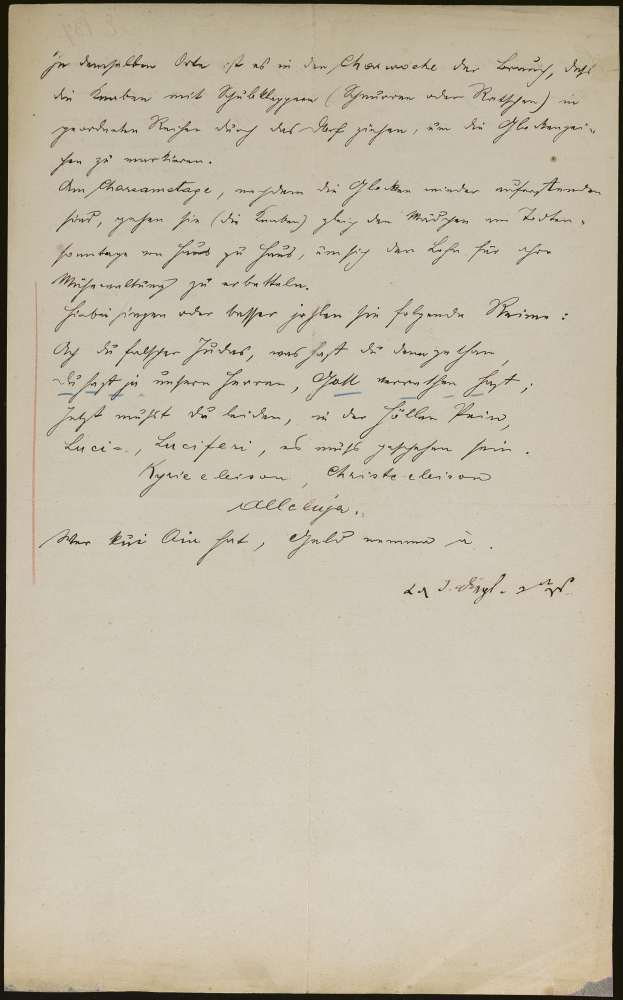 In demselben Orte ist es in der Charwoche der Brauch, daſs
die Knaben mit Schubkleppern (Schnurren oder Ratschen) in
geordneten Reihen durch das Dorf ziehen, um die Glockenzei-
chen zu markieren.
Am Charsamstage, nachdem die Glocken wieder auferstanden
sind, gehen sie (die Knaben) gleich den Mädchen am Todten-
sonntage von Haus zu Haus, um sich den Lohn für ihre
Mühewaltung zu erbetteln.
Hiebei singen oder besser johlen sie folgende Reime:
Ach du falscher Judas, was hast du denn gethan,
Du hast ja unsern Herren, Gott verrathen hast;
Jetzt muſst du leiden, in der Höllen Pein,
Luci-, Luciferi, es muſs geschehen sein.
Kyrie eleison, Christe eleison
Alleluja.
Wer kui Oia hat, Geld nemma a.